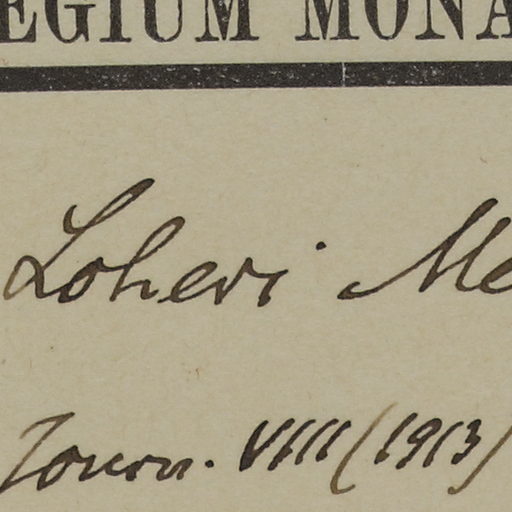 EGIUM MONA
Loheri Me
Journ. VIIII (1913)